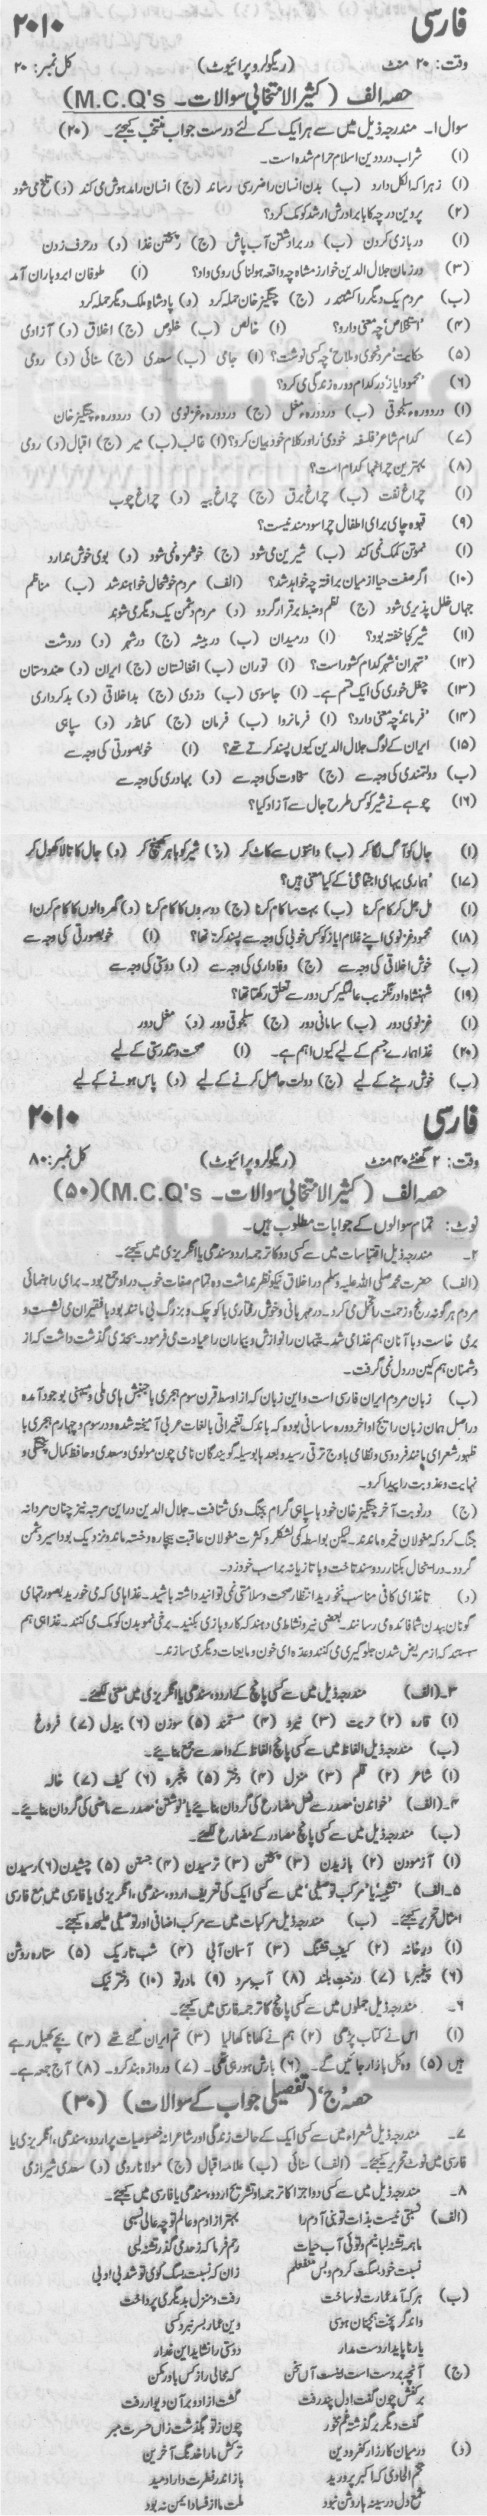 فارسی ۲۰۱۰
وقت: ۲۰ منٹ (ریگولر و پرائیوٹ) کل نمبر: ۲۰
حصہ الف (کثیر الانتخابی سوالات ۔ M.C.Q's)
سوال۱۔ مندرجہ ذیل میں سے ہر ایک کے لئے درست جواب منتخب کیجئے۔ (۲۰)
(۱) شراب در دین اسلام حرام شدہ است۔
(۱) زہرا کہ الکل دارد (ب) بدن انسان را ضرر می رساند (ج) انسان را مدہوش می کند (د) تلخ می شود
(۲) پروین در چہ کا با برادرش ارشد کوک کرد؟
(۱) در بازی کردن (ب) در برداشتن آب پاش (ج) در پختن غذا (د) در حرف زدن
(۳) در زمان جلال الدین خوارزم شاہ چہ واقعہ ہولناکی روی داد؟ (۱) طوفان ابر و باران آمد
(ب) مردم یک دیگر را کشتند (ج) چنگیز خان حملہ کرد (د) پادشاہ ملک دیگر حملہ کرد
(۴) 'استخلاص' چہ معنی دارد؟ (۱) خالص (ب) خلوص (ج) اخلاق (د) آزادی
(۵) حکایت 'مرد نحوی و ملاح' چہ کسی نوشت؟ (۱) جامی (ب) سعدی (ج) سنائی (د) رومی
(۶) 'محمود ایاز' در کدام دورہ زندگی می کرد؟
(۱) در دورہء سلجوقی (ب) در دورہء مغل (ج) در دورہء غزنوی (د) در دورہء چنگیز خان
(۷) کدام شاعر فلسفہ 'خودی' را در کلام خود بیان کرد؟ (۱) غالب (ب) میر (ج) اقبال (د) رومی
(۸) بہترین چراغہا کدام است؟
(۱) چراغ نفت (ب) چراغ برق (ج) چراغ پیہ (د) چراغ چوب
(۹) قہوہ چای برای اطفال چرا سود مند نیست؟
(۱) نمو تن کمک نمی کند (ب) شیرین می شود (ج) خوشمزہ نمی شود (د) بوی خوش ندارد
(۱۰) اگر صفت حیا از میان برافتد چہ خواہد شد؟ (الف) مردم خوشحال خواہند شد (ب) مناظم
جہاں خلل پذیری شود (ج) نظم و ضبط برقرار گردد (د) مردم دشمن یک دیگر می شوند
(۱۱) شیر کجا خفتہ بود؟ (۱) در میدان (ب) در بیشہ (ج) در شہر (د) در دشت
(۱۲) 'تہران' شہر کدام کشور است؟ (۱) توران (ب) افغانستان (ج) ایران (د) ہندوستان
(۱۳) چغل خوری کی ایک قسم ہے۔ (۱) جاسوسی (ب) دزدی (ج) بد اخلاقی (د) بد کرداری
(۱۴) 'فرماند' چہ معنی دارد؟ (۱) فرمانروا (ب) فرمان (ج) کمانڈر (د) سپاہی
(۱۵) ایران کے لوگ جلال الدین کو کیوں پسند کرتے تھے؟ (۱) خوبصورتی کی وجہ سے
(ب) دولتمندی کی وجہ سے (ج) سخاوت کی وجہ سے (د) بہادری کی وجہ سے
(۱۶) چوہے نے شیر کو کس طرح جال سے آزاد کیا؟
(۱) جال کو آگ لگا کر (ب) دانتوں سے کاٹ کر (ج) شیر کو باہر کھینچ کر (د) جال کا تالا کھول کر
(۱۷) 'ہماری بہای اجتماعی' کے کیا معنی ہیں؟
(۱) مل جل کر کام کرنا (ب) بہت سا کام کرنا (ج) دوسروں کا کام کرنا (د) گھر والوں کا کام کرنا
(۱۸) محمود غزنوی اپنے غلام ایاز کو کس خوبی کی وجہ سے پسند کرتا تھا؟ (۱) خوبصورتی کی وجہ سے
(ب) خوش اخلاقی کی وجہ سے (ج) وفاداری کی وجہ سے (د) دوستی کی وجہ سے
(۱۹) شہنشاہ اورنگزیب عالمگیر کس دور سے تعلق رکھتا تھا؟
(۱) غزنوی دور (ب) سامانی دور (ج) سلجوقی دور (د) مغل دور
(۲۰) غذا ہمارے جسم کے لیے کیوں اہم ہے۔ (۱) صحت و تندرستی کے لیے
(ب) خوش رہنے کے لیے (ج) دولت حاصل کرنے کے لیے (د) پاس ہونے کے لیے
فارسی ۲۰۱۰
وقت: ۲ گھنٹے ۴۰ منٹ (ریگولر و پرائیوٹ) کل نمبر: ۸۰
حصہ الف (کثیر الانتخابی سوالات ۔ M.C.Q's) (۵۰)
نوٹ: تمام سوالوں کے جوابات مطلوب ہیں۔
۲۔ مندرجہ ذیل اقتباسات میں سے کسی دو کا ترجمہ اردو سندھی یا انگریزی میں کیجئے۔
(الف) حضرت محمد صلی اللہ علیہ وسلم در اخلاق نیکو نظیر نداشت وہ تمام صفات خوب در او جمع بود۔ برای راہنمائی
مردم ہر گونہ رنج و زحمت را تحمل می کرد۔ در مہربانی و خوش رفتاری با کوچک و بزرگ بی مانند بود با فقیران می نشست و
بر می خاست و با آنان ہم غذا می شد۔ یتیمان را نوازش و بیماران را عیادت می فرمود۔ بحدی گذشت داشت کہ از
دشمنان ہم کین در دل نمی گرفت۔
(ب) زبان مردم ایران فارسی است و این زبان کہ از اوسط قرن سوم ہجری با جنبش ہای ملی و میہنی بوجود آمدہ
در اصل ہمان زبان رایج اواخر دورہ ساسانی بودہ کہ باندک تغیراتی بالغات عربی آمیختہ شدہ و در سوم و چہارم ہجری با
ظہور شعرای مانند فردوسی و نظامی باوج ترقی رسید و بعد ہا بوسیلہ گویندگان نامی چون مولوی و سعدی و حافظ کمال پختگی و
نہایت و عذوبت را پیدا کرد۔
(ج) در نوبت آخر چنگیز خان خود با سپاہی گرام بجنگ وی شتافت۔ جلال الدین در این مرتبہ نیز چنان مردانہ
جنگ کرد کہ مغولان خیرہ ماندند۔ لیکن بواسطہ کمی لشکر و کثرت مغولان عاقبت بیچارہ و خستہ ماند و نزدیک بود اسیر دشمن
گردد۔ در انحال بکنار رود سند تاخت و با تازیانہ بر اسب خود زد۔
(د) تا غذای کافی مناسب نخورید انتظار صحت و سلامتی نمی توانید داشتہ باشید۔ غذا ہای کہ می خورید بصورتہای
گوناں بدن شما فائدہ می رسانند۔ بعضی نیرو و نشاط می دہند کہ کار و بازی بکنید۔ برخی نمو بدن کومک می کنند۔ غذایی ہم
ہستند کہ از مریض شدن جلوگیری می کنند و عدہ ای خون و مایعات دیگر می سازند۔
۳۔(الف) مندرجہ ذیل میں سے کسی پانچ کے اردو، سندھی یا انگریزی میں معنی لکھئے۔
(۱) قارہ (۲) حریت (۳) نیرو (۴) مستمند (۵) سوزن (۶) بیدل (۷) فروغ
(ب) مندرجہ ذیل الفاظ میں سے کسی پانچ الفاظ کے واحد سے جمع بنائیے۔
(۱) شاعر (۲) قلم (۳) منزل (۴) دختر (۵) پنجرہ (۶) کیف (۷) خالہ
۴۔(الف) 'خواندن' مصدر سے فعل مضارع کی گردان بنائیے یا 'نوشتن' مصدر سے ماضی کی گردان بنائیے۔
(ب) مندرجہ ذیل میں سے کسی پانچ مصادر کے مضارع لکھئے۔
(۱) آزمودن (۲) بازیدن (۳) پختن (۴) ترسیدن (۴) جستن (۵) چشیدن (۶) رسیدن
۵۔ الف) 'تشبیہ' یا 'مرکب توصیفی' میں سے کسی ایک کی تعریف اردو، سندھی، انگریزی یا فارسی میں مع فارسی
امثال تحریر کیجئے۔ (ب) مندرجہ ذیل مرکبات میں سے مرکب اضافی اور توصیفی علیحدہ کیجئے۔
(۱) در خانہ (۲) کیف قشنگ (۳) آسمان آبی (۴) شب تاریک (۵) ستارہ روشن
(۶) پیغمبر ما (۷) درخت بلند (۸) آب سرد (۹) مادر تو (۱۰) دختر نیک
۶۔ مندرجہ ذیل جملوں میں سے کسی پانچ کا ترجمہ فارسی میں کیجئے۔
(۱) اس نے کتاب پڑھی (۲) ہم نے کھانا کھالیا (۳) تم ایران گئے تھے (۴) بچے کھیل رہے
ہیں (۵) وہ کل بازار جائیں گے۔ (۶) بارش ہو رہی تھی۔ (۷) دروازہ بند کرو۔ (۸) آج جمعہ ہے۔
حصہ 'ج' (تفصیلی جواب کے سوالات) (۳۰)
۷۔ مندرجہ ذیل شعراء میں سے کسی ایک کے حالت زندگی اور شاعرانہ خصوصیات پر اردو، سندھی، انگریزی یا
فارسی میں نوٹ تحریر کیجئے۔ (الف) سنائی (ب) علامہ اقبال (ج) مولانا رومی (د) سعدی شیرازی
۸۔ مندرجہ ذیل میں سے کسی دو اجزا کا ترجمہ و تشریح اردو، سندھی یا فارسی میں کیجئے۔
(الف) نسبتی نیست بذات تو بنی آدم را بہتر از آدم و عالم تو چہ عالی نسبی
ما ہمہ تشنہ لبانیم و توئی آب حیات رحم فرما کہ ز حد می گذر تشنہ لبی
نسبت خود بسگت کردم و بس منفعلم زان کہ نسبت بسگ کوی تو شد بی ادبی
(ب) ہر کہ آمد عمارت نو ساخت رفت و منزل بدیگری پرداخت
واند گر پخت ہمچنان ہوسی وین عمار بسر نبرد کسی
یار ناپایدار دوست مدار دوستی را نشاید این غدار
(ج) آنچہ بر دست است اینست آں سخن کہ محالی راز کس باور مکن
بر کفش چون گفت اول پند رفت گشت آزاد و بر آن دیوار رفت
گفت دیگر بر گذشتہ غم مخور چون ز تو بگذشت زاں حسرت مبر
(د) در میان کارزار کفر و دین ترکش ما را خدنگ آخرین
تخم الحادی کہ اکبر پرورید باز اندر فطرت دارا دمید
شمع دل در سینہ ہا روشن نبود ملت ما از فساد ایمن نہ بود